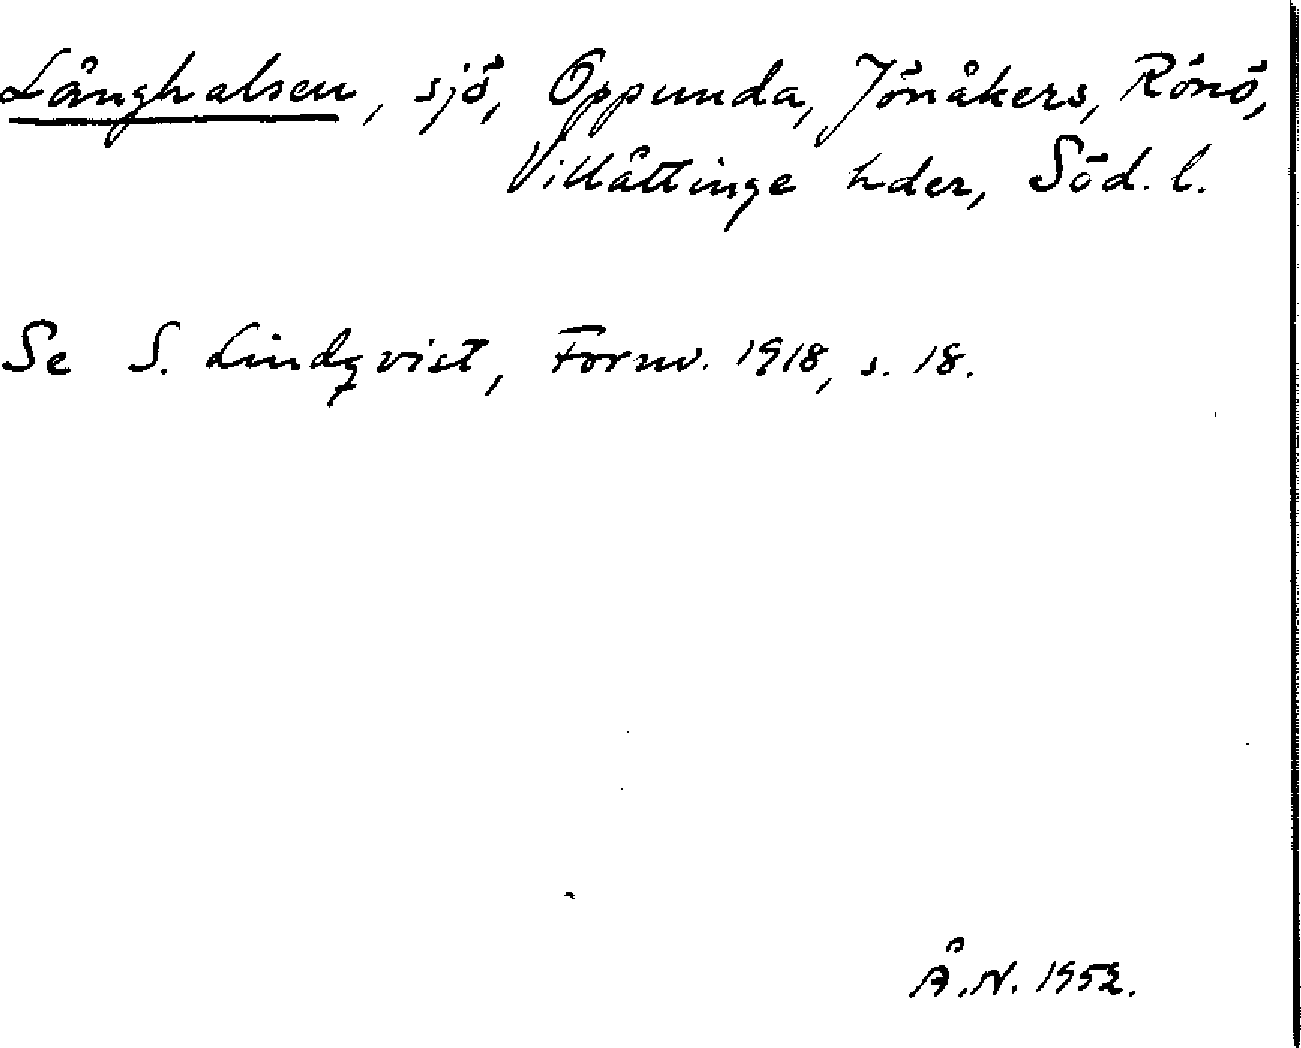 Långhalsen, sjö, Oppunda, Jönåkers, Rönö,
Villåttinge hder, Söd. l.
Se S. Lindqvist, Fornv. 1918, s. 18.
Å.N. 1952.